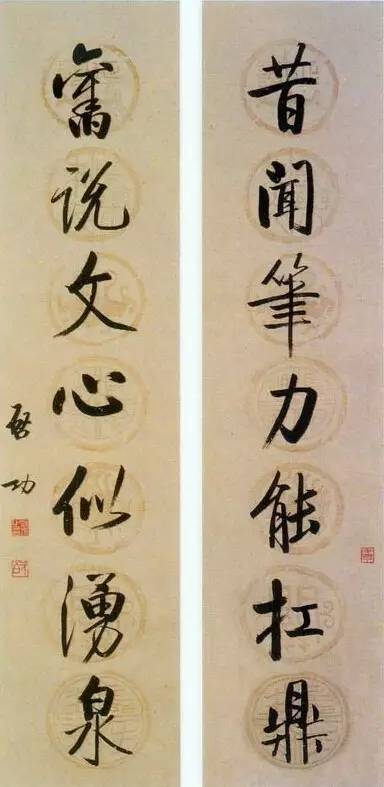 昔聞筆力能扛鼎
舊說文心似湧泉
啓功